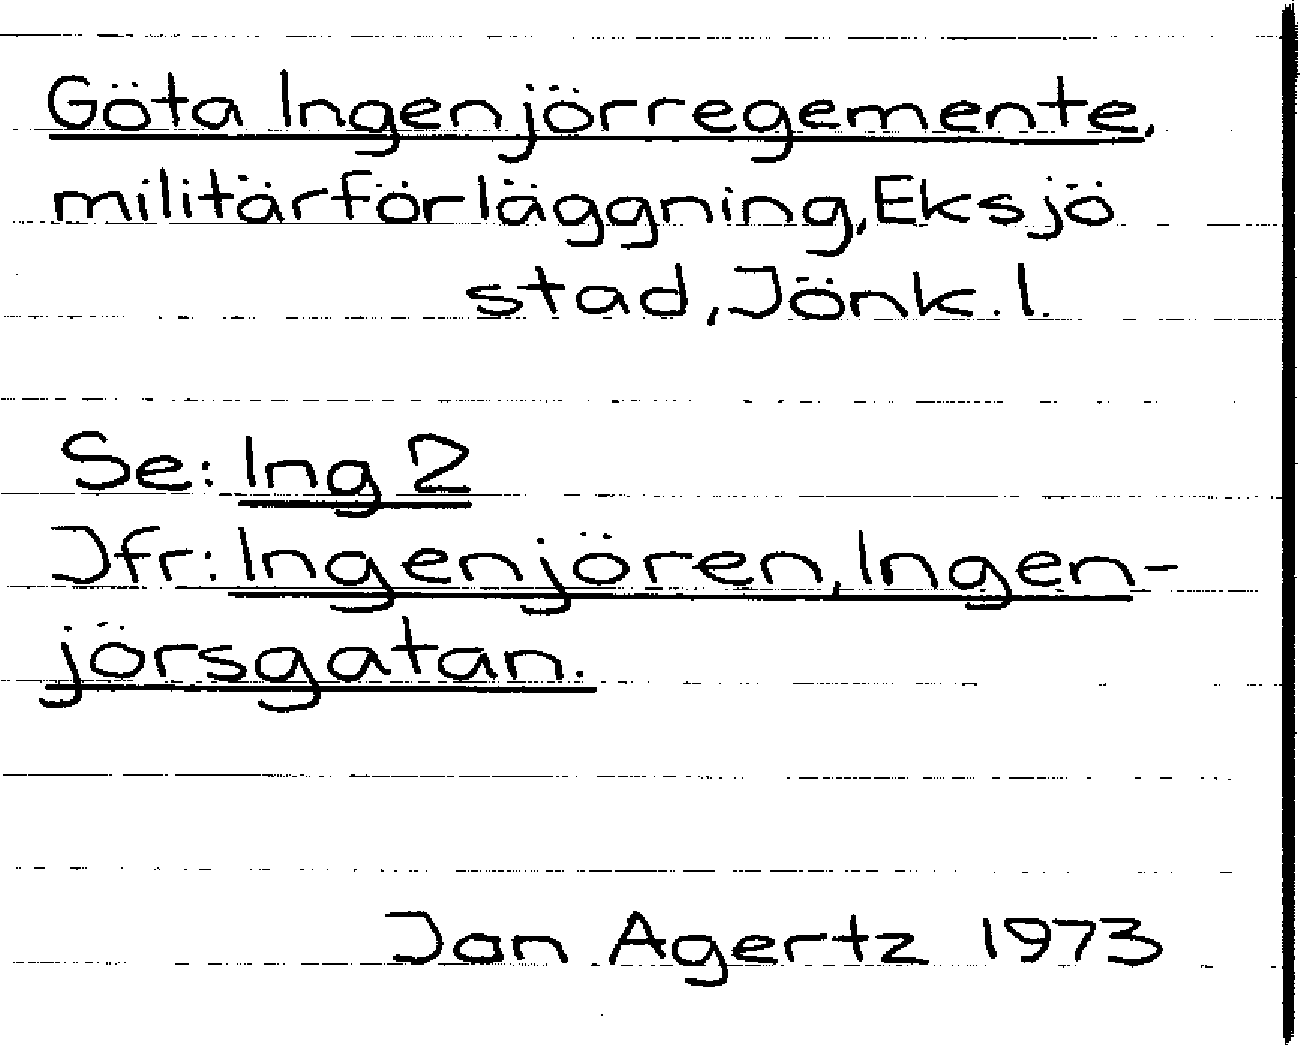 Göta Ingenjörregemente,
militärförläggning, Eksjö
stad, Jönk. l.
Se: Ing 2
Jfr: Ingenjören, Ingen-
jörsgatan.
Jan Agertz 1973